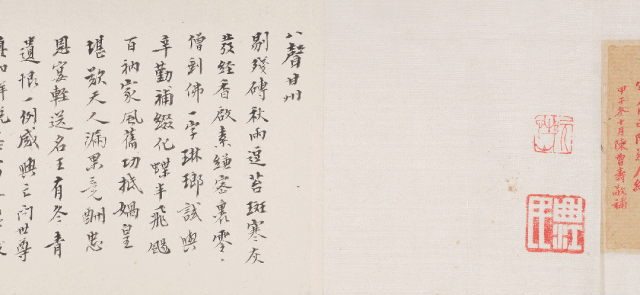 甲子冬十月陳曾壽敬補
八聲甘州
剔殘磚秋雨逗苔斑寒灰
發經香啟素縑密裹零
僧佛一字琳瑯試與
辛勤補綴化蝶半飛颺
百衲家風舊功抵媧皇
堪歎天人漏果竟酬忠
恩宴輕送名王有冬青
遺恨一例感興亡問世尊